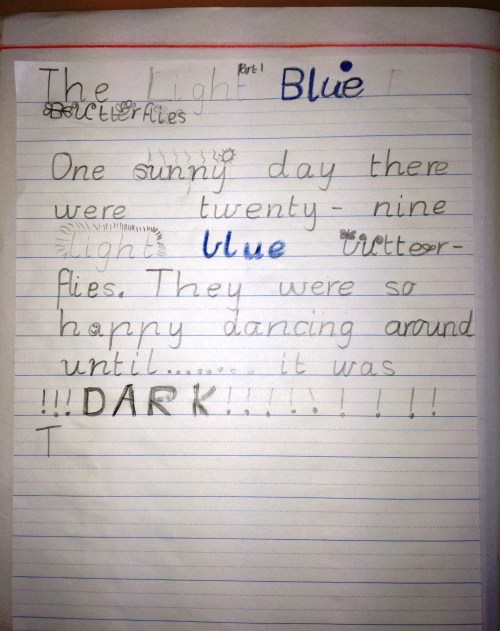 The Light Part 1 Blue
Butterflies
One sunny day there
were twenty-nine
light blue butter-
flies. They were so
happy dancing around
until........ it was
!!!DARK!!!!!!!!
T